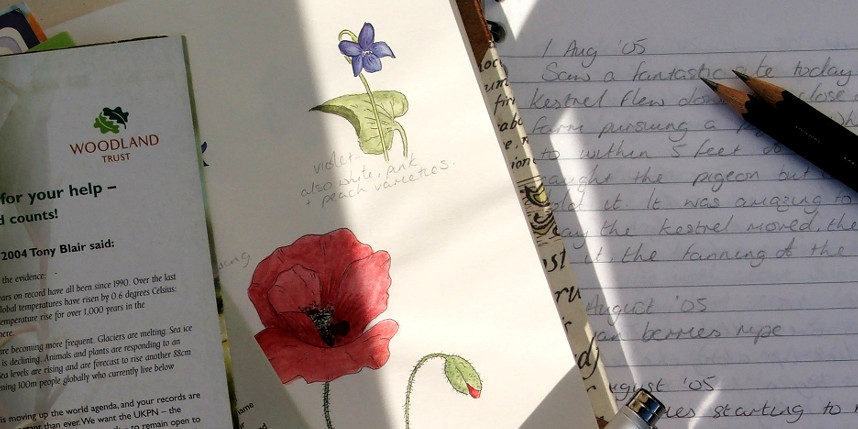 WOODLAND
TRUST
for your help –
d counts!
2004 Tony Blair said:
the evidence:
ears on record have all been since 1990. Over the last
lobal temperatures have risen by 0.6 degrees Celsius:
emperature rise for over 1,000 years in the
here.
are becoming more frequent. Glaciers are melting. Sea ice
is declining. Animals and plants are responding to an
Sea levels are rising and are forecast to rise another 88cm
ning 100m people globally who currently live below
is moving up the world agenda, and your records are
than ever. We want the UKPN – the
– to remain open to
violet
also white, pink
+ peach varieties.
1 Aug '05
Saw a fantastic today
Kestrel flew close
farm pursuing a
to within 5 feet
caught the pigeon but
it. It was amazing to
the kestrel moved, the
it, the fanning of the
August '05
berries ripe
August '05
starting to